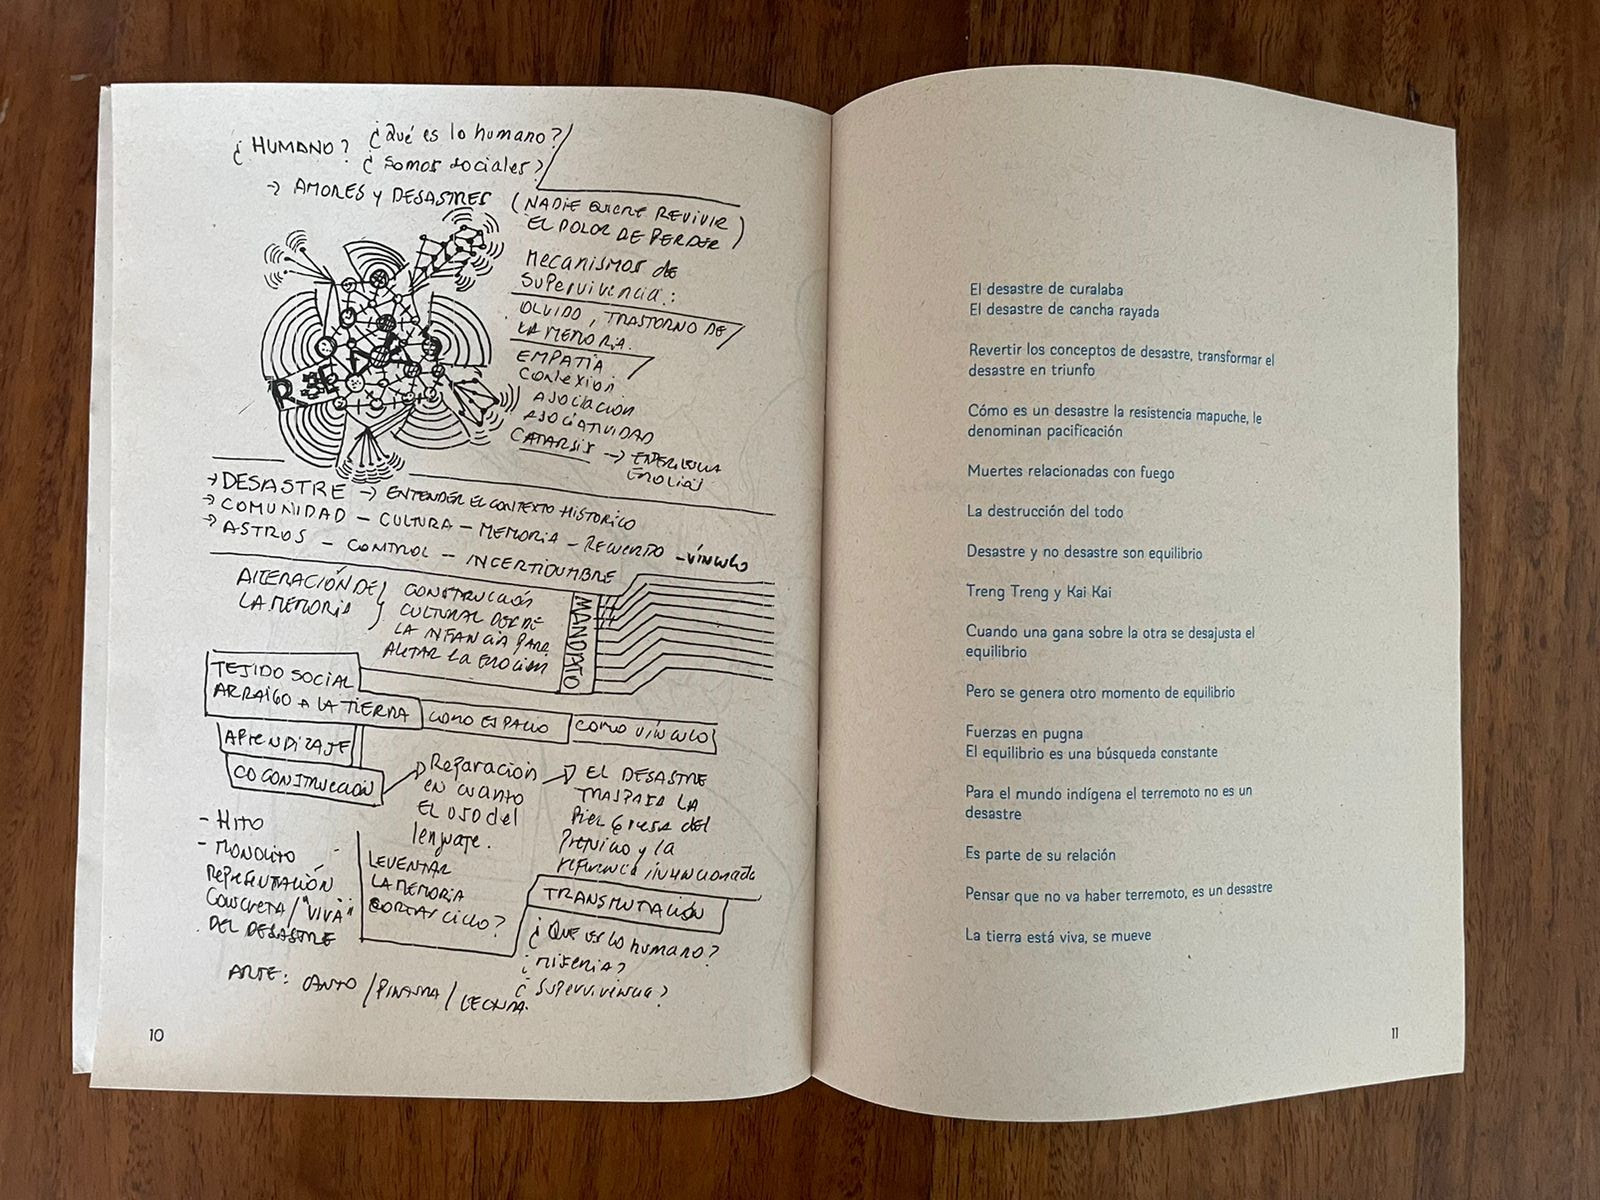 ¿HUMANO? ¿Qué es lo humano?
¿Somos sociales?
→ AMORES Y DESASTRES (NADIE QUIERE REVIVIR
EL DOLOR DE PERDER)
Mecanismos de
Supervivencia:
OLVIDO, TRASTORNO DE
LA MEMORIA.
EMPATÍA
Conexión
ASOCIACIÓN
ASOCIATIVIDAD
CATARSIS →
→ DESASTRE → ENTENDER EL CONTEXTO HISTÓRICO
→ COMUNIDAD – CULTURA – MEMORIA – RECUERDO – VÍNCULO
→ ASTROS – CONTROL – INCERTIDUMBRE
ALTERACIÓN DE
LA MEMORIA
CONSTRUCCIÓN
CULTURAL DESDE
LA INFANCIA PARA
LA EMOCIÓN
MANDATO
TEJIDO SOCIAL
ARRAIGO A LA TIERRA COMO ESPACIO COMO VÍNCULO
APRENDIZAJE
CO CONSTRUCCIÓN
Reparación
en cuanto
EL USO del
lenguaje.
EL DESASTRE
TRASPASA LA
Piel GRUESA DEL
Prejuicio y la
referencia
- HITO
- MONOLITO
Representación
CONCRETA/"VIVA"
DEL DESASTRE
LEVENTAR
LA MEMORIA
CORTAR CICLO?
TRANSMUTACIÓN
¿QUE ES LO humano?
¿MISERIA?
¿Supervivencia?
ARTE: CANTO / PINTURA / LECTURA.
10
El desastre de curalaba
El desastre de cancha rayada
Revertir los conceptos de desastre, transformar el
desastre en triunfo
Cómo es un desastre la resistencia mapuche, le
denominan pacificación
Muertes relacionadas con fuego
La destrucción del todo
Desastre y no desastre son equilibrio
Treng Treng y Kai Kai
Cuando una gana sobre la otra se desajusta el
equilibrio
Pero se genera otro momento de equilibrio
Fuerzas en pugna
El equilibrio es una búsqueda constante
Para el mundo indígena el terremoto no es un
desastre
Es parte de su relación
Pensar que no va haber terremoto, es un desastre
La tierra está viva, se mueve
11